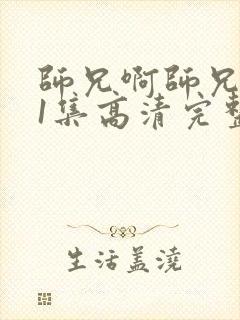 師兄啊師兄
1集高清完整
生活蓋澆